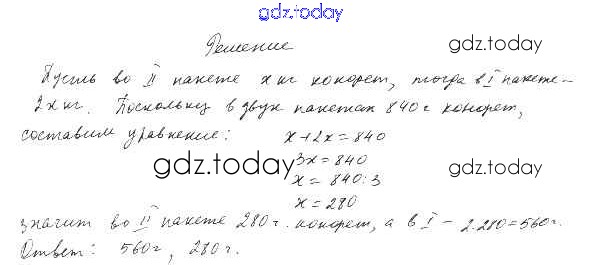 gdz.today
Решение
gdz.today
Пусть во II пакете x кг конфет, тогда в I пакете –
2x кг. Поскольку в двух пакетах 840 г конфет,
составим уравнение: x+2x=840
gdz.today
3x=840
gdz.today
x=840:3
x=280
значит во II пакете 280 г. конфет, а в I – 2·280=560г.
Ответ: 560г, 280г.